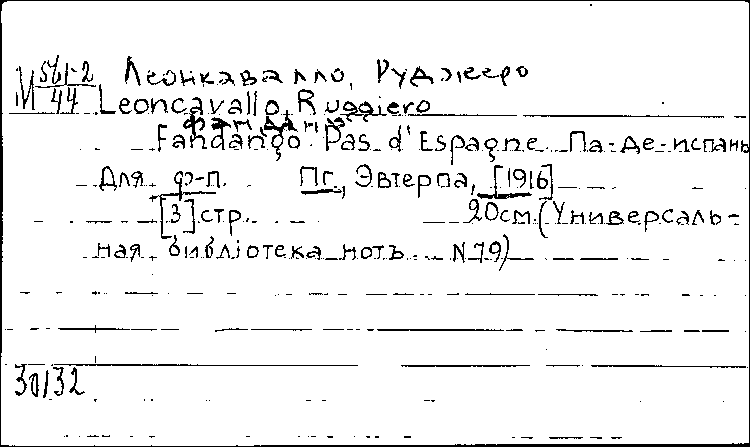 М 561-2/44 Леонкавалло, Руджеро
Leoncavallo, Ruggiero
фанданго
Fandango. Pas d'Espagne. Па-де-испань
Для ф-п. Пг., Эвтерпа, [1916]
[3] стр. 20см. (Универсаль-
ная библiотека нотъ. N79)
30/32